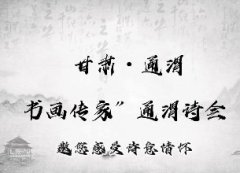 甘肃·通渭
书画传家”通渭诗会
邀您感受诗意情怀